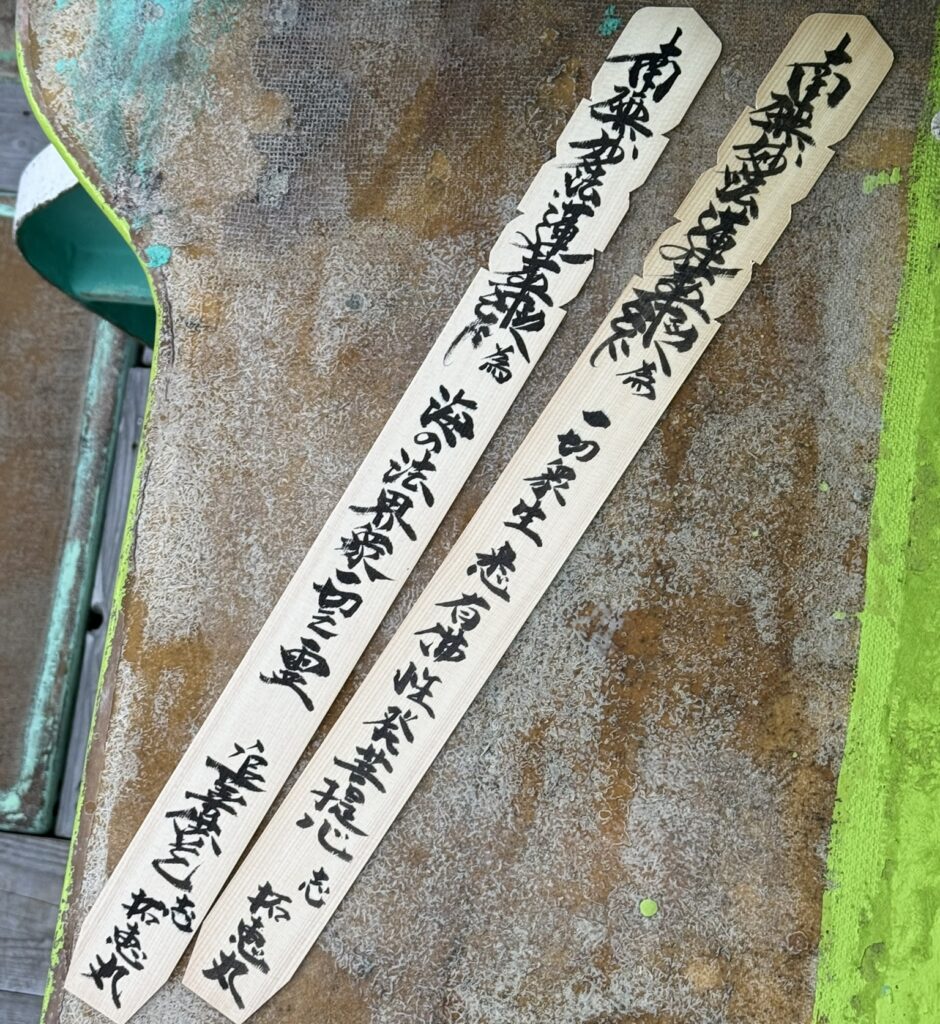 南無妙法蓮華経 為 一切衆生 悉有佛性 発菩提心 志 拓恵丸
南無妙法蓮華経 為 海の法界衆一切之霊 追善供養 志 拓恵丸